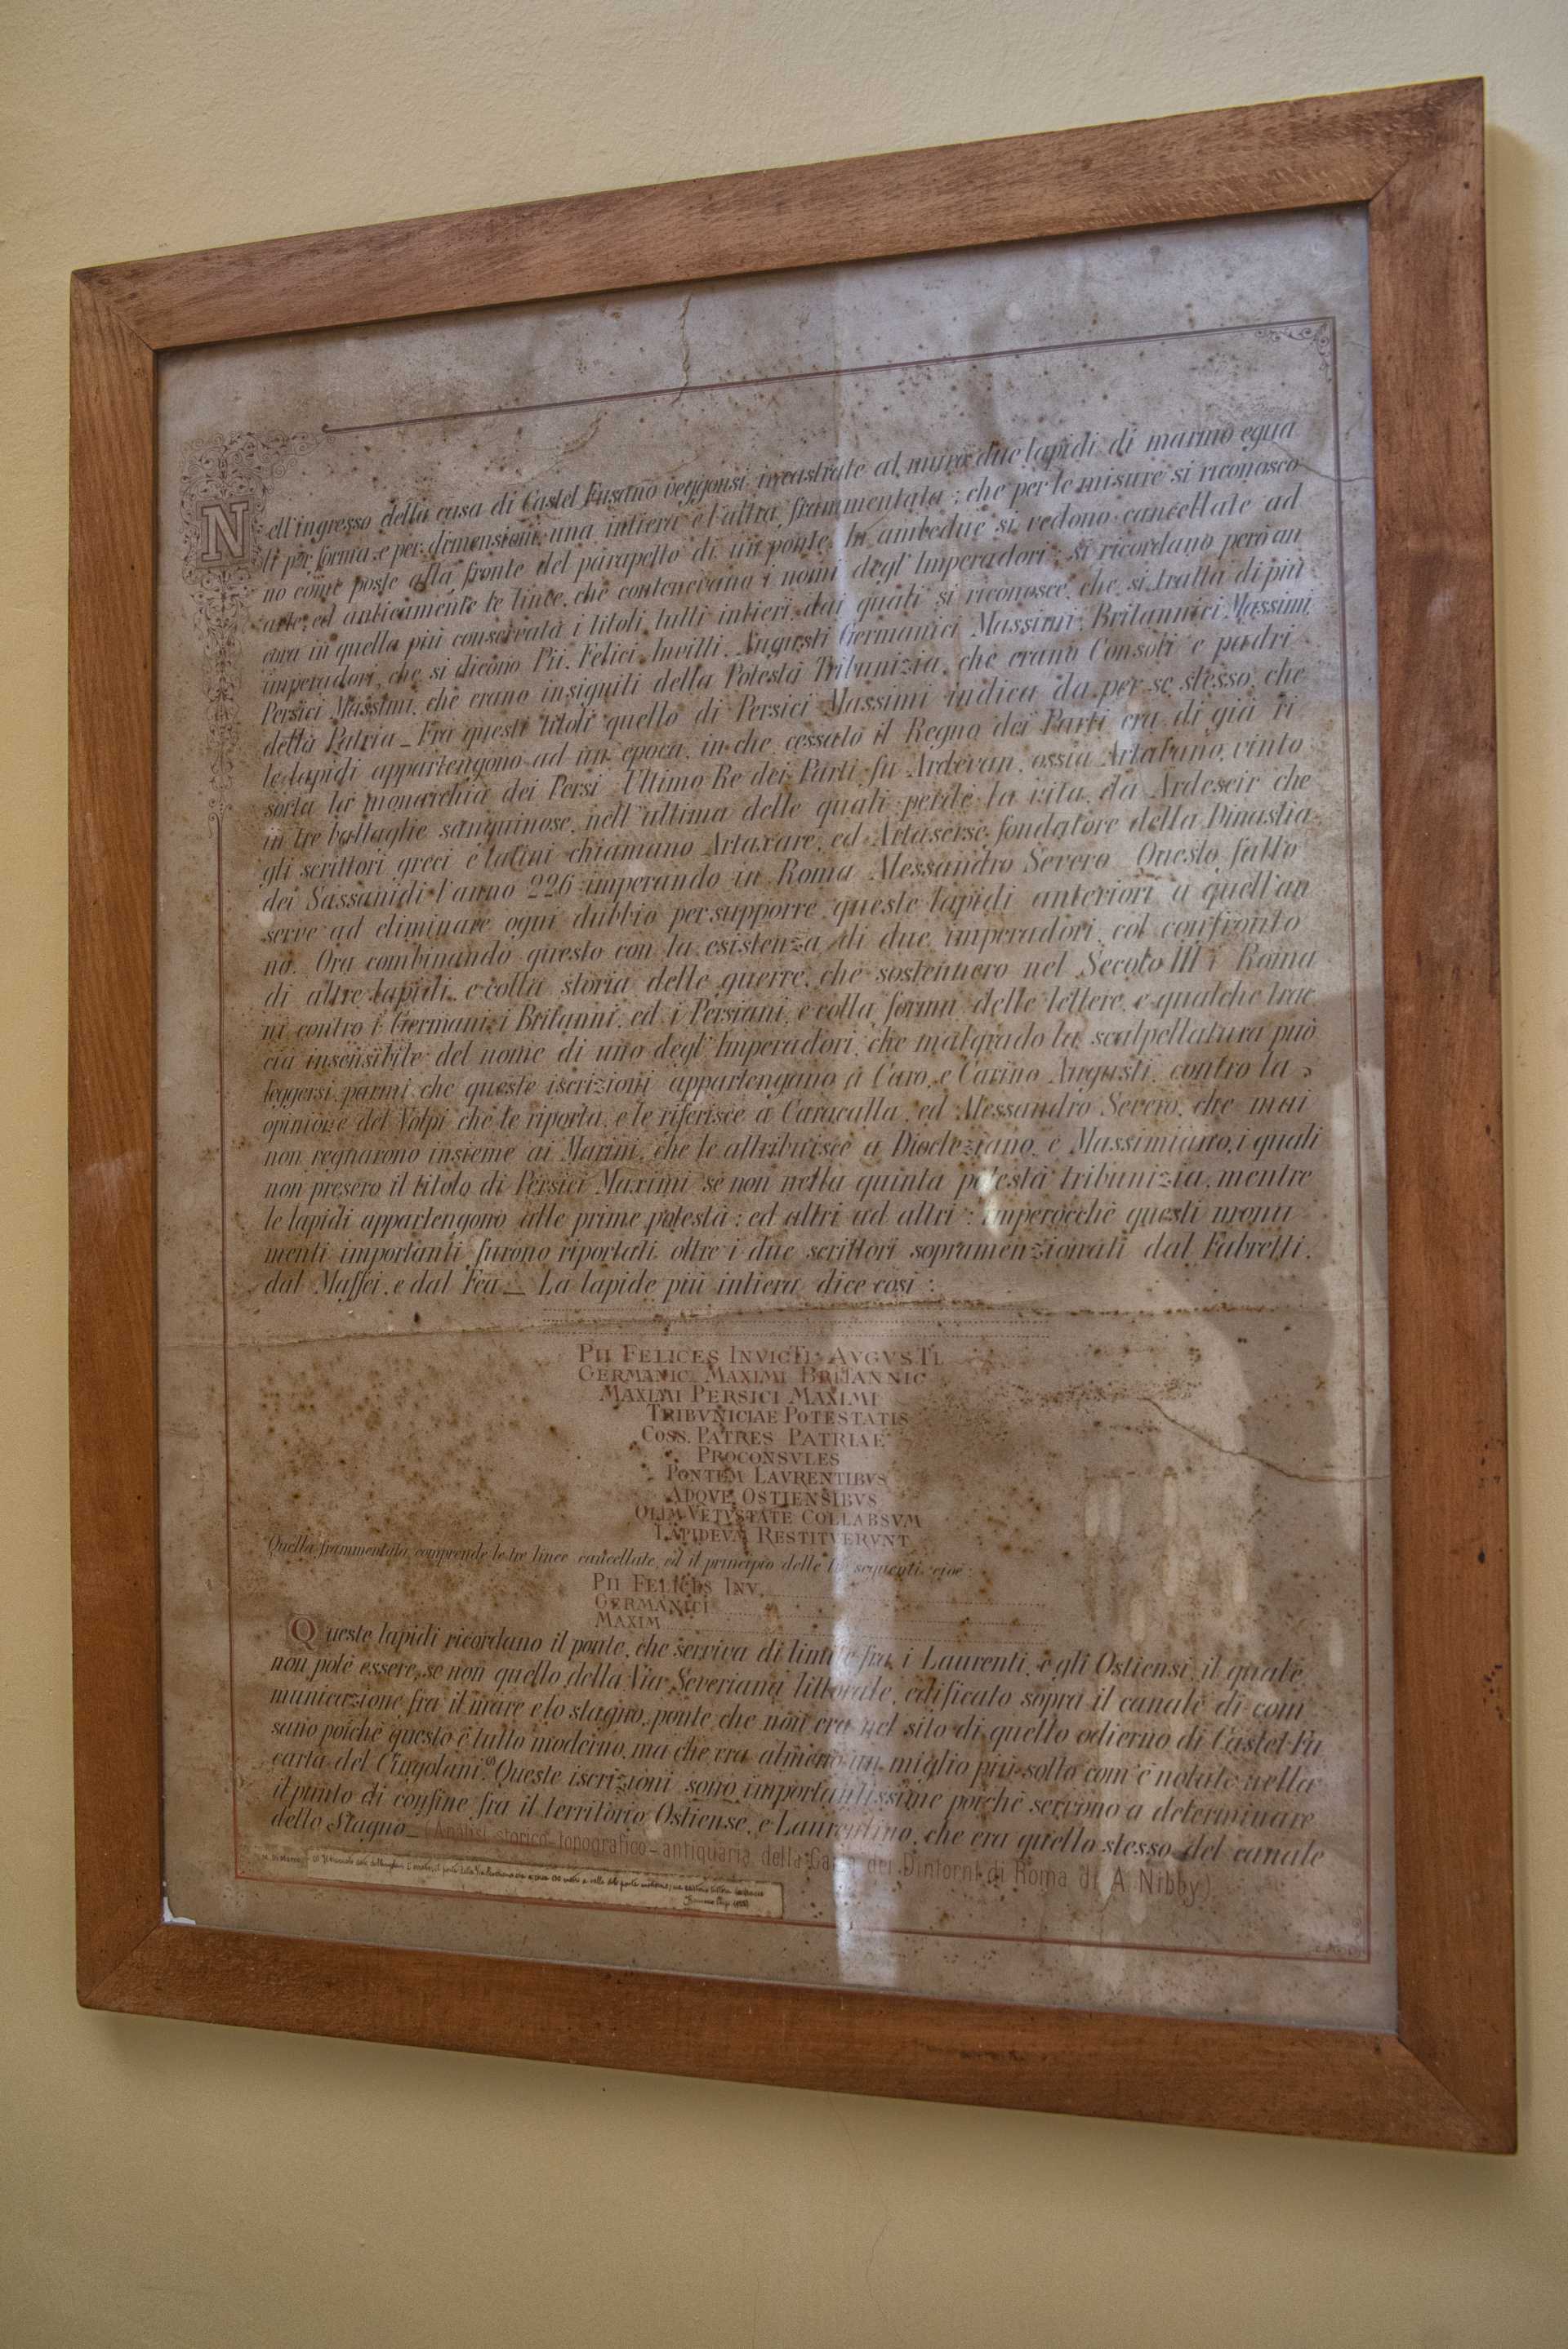 Nell'ingresso della casa di Castel Fusano veggonsi incastrate al muro due lapidi di marmo egua
li per forma e per dimensioni, una intiera e l'altra frammentata; che per le misure si riconosco
no come poste alla fronte del parapetto di un ponte. In ambedue si vedono cancellate ad
arte, ed anticamente le linee, che contenevano i nomi degl'Imperadori; si ricordano però an
cora in quella più conservata i titoli tutti intieri dai quali si riconosce, che si tratta di più
imperadori, che si dicono Pii, Felici, Invitti, Augusti Germanici Massimi, Britannici Massimi
Persici Massimi, che erano insigniti della Potestà Tribunizia, che erano Consoli e padri
della Patria_ Fra questi titoli quello di Persici Massimi indica da per se stesso, che
le lapidi appartengono ad un epoca, in che cessato il Regno dei Parti era di già ri
sorta la monarchia dei Persi. Ultimo Re dei Parti fu Ardevan, ossia Artabano, vinto
in tre battaglie sanguinose, nell'ultima delle quali perdè la vita, da Ardescir che
gli scrittori greci e latini chiamano Artaxare, ed Artaserse fondatore della Dinastia
dei Sassanidi l'anno 226 imperando in Roma Alessandro Severo_ Questo fatto
serve ad eliminare ogni dubbio per supporre queste lapidi anteriori a quell'an
no. Ora combinando questo con la esistenza di due imperadori, col confronto
di altre lapidi, e colla storia delle guerre, che sostennero nel Secolo III i Roma
ni contro i Germani, i Britanni, ed i Persiani, e colla forma delle lettere, e qualche trac
cia insensibile del nome di uno degl'Imperadori, che malgrado la scalpellatura può
leggersi, parmi che queste iscrizioni appartengano a Caro, e Carino Augusti, contro la
opinione del Volpi che le riporta, e le riferisce a Caracalla, ed Alessandro Severo, che mai
non regnarono insieme ai Marini, che le attribuisce a Diocleziano, e Massimiano, i quali
non presero il titolo di Persici Maximi se non nella quinta potestà tribunizia, mentre
le lapidi appartengono alle prime potestà; ed altri ad altri: imperocchè questi monu
menti importanti furono riportati, oltre i due scrittori sopramenzionati dal Fabretti,
dal Maffei, e dal Fea_ La lapide più intiera dice così:
PII FELICES INVICTI AVGVSTI
GERMANICI MAXIMI BRITANNIC
MAXIMI PERSICI MAXIMI
TRIBVNICIAE POTESTATIS
COSS. PATRES PATRIAE
PROCONSVLES
PONTEM LAVRENTIBVS
ADQVE OSTIENSIBVS
OLIM VETVSTATE COLLABSVM
LAPIDEVM RESTITVERVNT
Quella frammentata comprende le tre linee cancellate, ed il principio delle tre seguenti, cioè:
PII FELICES INV
GERMANICI
MAXIM
Queste lapidi ricordano il ponte, che serviva di limite fra i Laurenti, e gli Ostiensi, il quale
non potè essere, se non quello della Via Severiana littorale, edificato sopra il canale di com
municazione fra il mare e lo stagno, ponte che non era nel sito di quello odierno di Castel Fu
sano poichè questo è tutto moderno, ma che era almeno un miglio più sotto com'è notato nella
carta del Cingolani. Queste iscrizioni sono importantissime poichè servono a determinare
il punto di confine fra il territorio Ostiense, e Laurentino, che era quello stesso del canale
dello Stagno_ (Analisi storico-topografico-antiquaria della Carta dei Dintorni di Roma di A. Nibby)